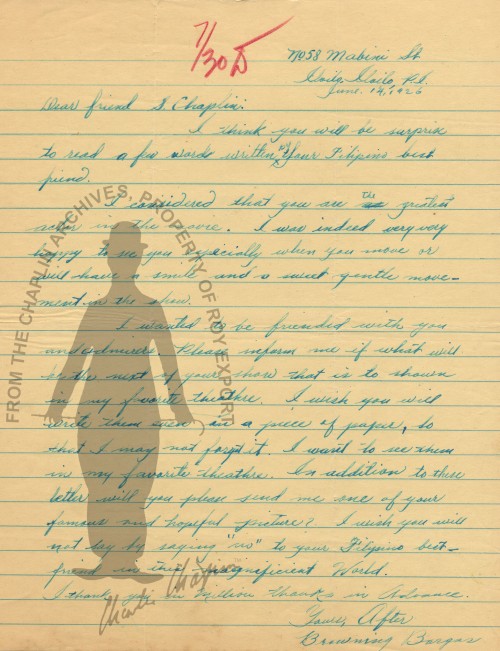 7/30 D
No 58 Mabini St
Iloilo, Iloilo, P.I.
June. 14, 1926
Dear friend S. Chaplin:
I think you will be surprise
to read a few words written of your Filipino best
friend.
I considered that you are the greatest
actor in the movie. I was indeed very very
happy to see you specially when you move or
will have a smile and a sweet gentle move-
ment in the show.
I wanted to be friended with you
and admirers. Please inform me if what will
be the next of your show that is to shown
in my favorite theathre. I wish you will
write them even in a piece of paper, so
that I may not forget it. I want to see them
in my favorite theathre. In addition to these
letter will you please send me one of your
famous and hopeful picture? I wish you will
not say by saying "no" to your Filipino best-
friend in this magnificient World.
I thank you in million thanks in Advance.
Yours After
Browning Bargas
FROM THE CHAPLIN ARCHIVES, PROPERTY OF ROY EXPORT
Charlie Chaplin